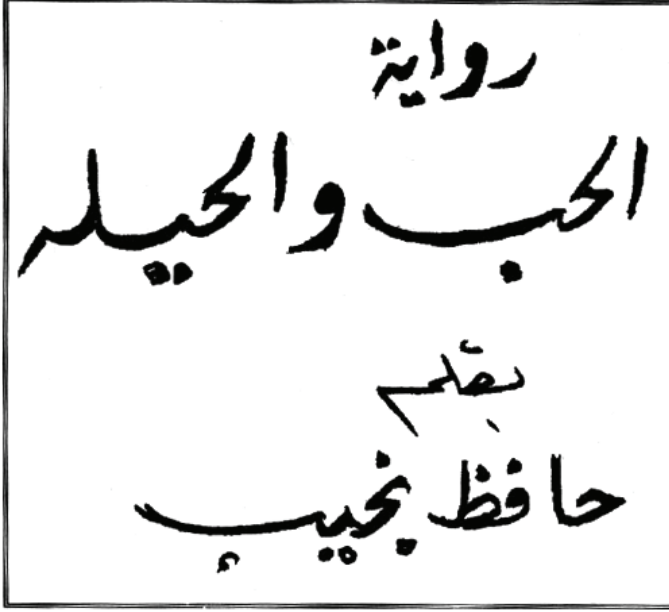 رواية
الحب والحيله
بقلم
حافظ نجيب